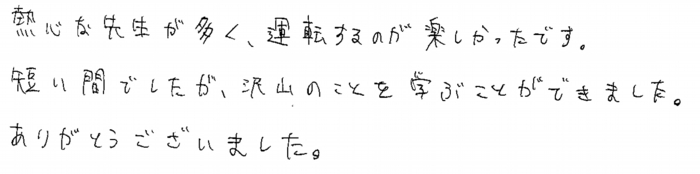 熱心な先生が多く、運転するのが楽しかったです。
短い間でしたが、沢山のことを学ぶことができました。
ありがとうございました。